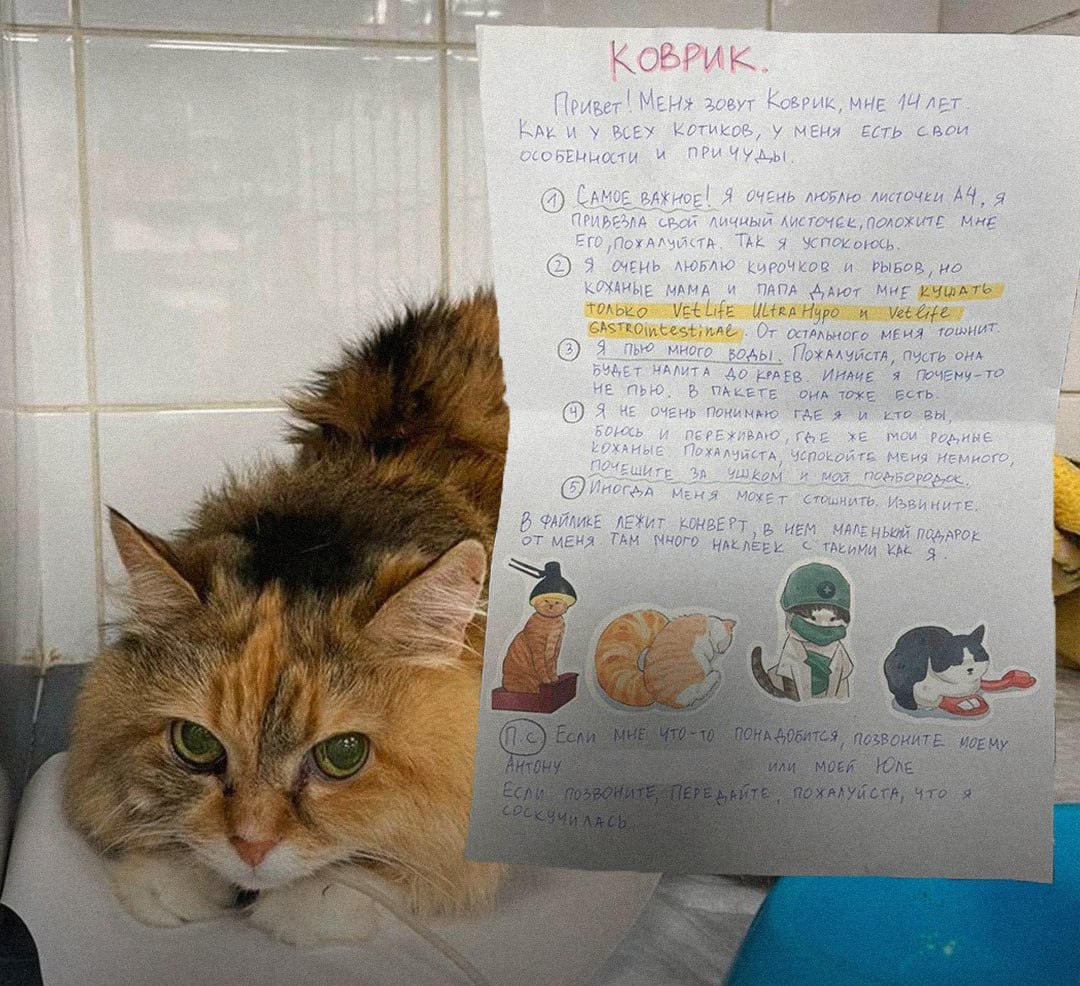 КОВРИК.
Привет! Меня зовут Коврик, мне 14 лет.
Как и у всех котиков, у меня есть свои
особенности и причуды.
1 Самое важное! Я очень люблю листочки А4, я
привезла свой личный листочек, положите мне
его, пожалуйста. Так я успокоюсь.
2 Я очень люблю курочков и рыбов, но
кожаные мама и папа дают мне кушать
только VetLife UltraHypo и Vetlife
GASTROintestinal. От остального меня тошнит.
3 Я пью много воды. Пожалуйста, пусть она
будет налита до краев. Иначе я почему-то
не пью. В пакете она тоже есть.
4 Я не очень понимаю где я и кто вы,
боюсь и переживаю, где же мои родные
кожаные. Пожалуйста, успокойте меня немного,
почешите за ушком и мой подбородок.
5 Иногда меня может стошнить. Извините.
В файлике лежит конверт, в нем маленький подарок
от меня. Там много наклеек с такими как я.
П.с. Если мне что-то понадобится, позвоните моему
Антону или моей Юле
Если позвоните, передайте, пожалуйста, что я
соскучилась.